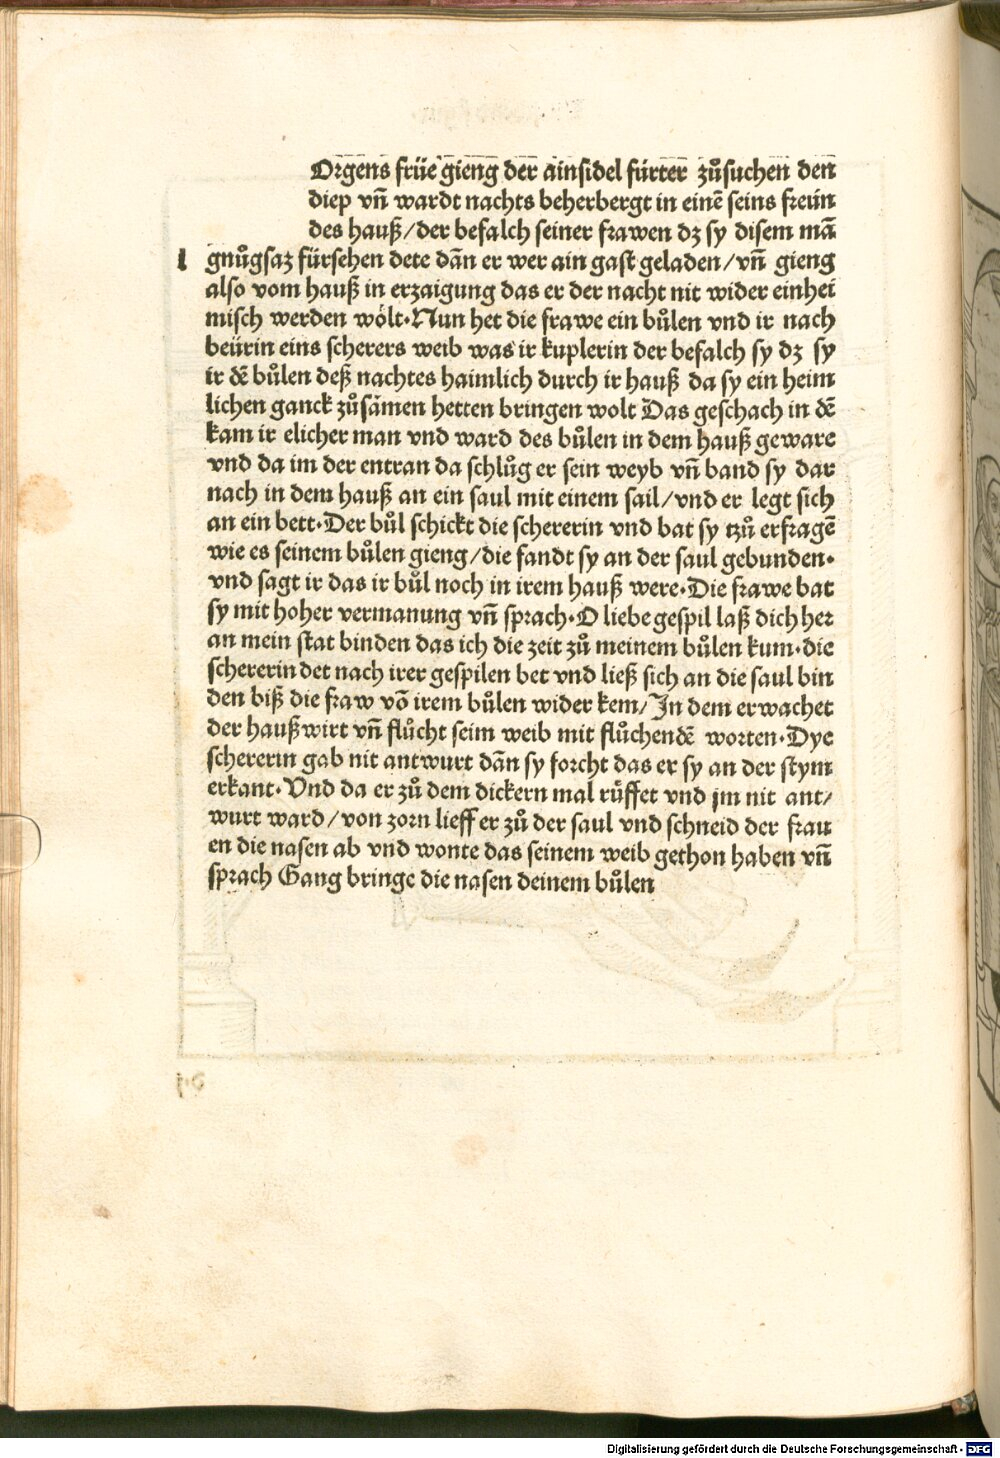 Orgens früe gieng der ainsidel fürter zůsuchen den
diep vn̄ wardt nachts beherbergt in einē seins freün
des hauß/der befalch seiner frawen dz sy disem mā
gnůgsaz fürsehen dete dān er wer ain gast geladen/vn̄ gieng
also vom hauß in erzaigung das er der nacht nit wider einhei
misch werden wölt·Nun het die frawe ein bůlen vnd ir nach
beürin eins scherers weib was ir kuplerin der befalch sy dz sy
ir dē bůlen deß nachtes haimlich durch ir hauß da sy ein heim
lichen ganck zůsāmen hetten bringen wolt Das geschach in dē
kam ir elicher man vnd ward des bůlen in dem hauß geware
vnd da im der entran da schlůg er sein weyb vn̄ band sy dar
nach in dem hauß an ein saul mit einem sail/vnd er legt sich
an ein bett·Der bůl schickt die schererin vnd bat sy tzů erfragē
wie es seinem bůlen gieng/die fandt sy an der saul gebunden·
vnd sagt ir das ir bůl noch in irem hauß were·Die frawe bat
sy mit hoher vermanung vn̄ sprach·O liebe gespil laß dich her
an mein stat binden das ich die zeit zů meinem bůlen kum·die
schererin det nach irer gespilen bet vnd ließ sich an die saul bin
den biß die fraw vō irem bůlen wider kem/In dem erwachet
der haußwirt vn̄ flůcht seim weib mit flůchendē worten·Dye
schererin gab nit antwurt dān sy forcht das er sy an der stym
erkant·Vnd da er zů dem dickern mal rüffet vnd jm nit ant/
wurt ward/von zorn lieff er zů der saul vnd schneid der frau
en die nasen ab vnd wonte das seinem weib gethon haben vn̄
sprach Gang bringe die nasen deinem bůlen
Digitalisierung gefördert durch die Deutsche Forschungsgemeinschaft - DFG